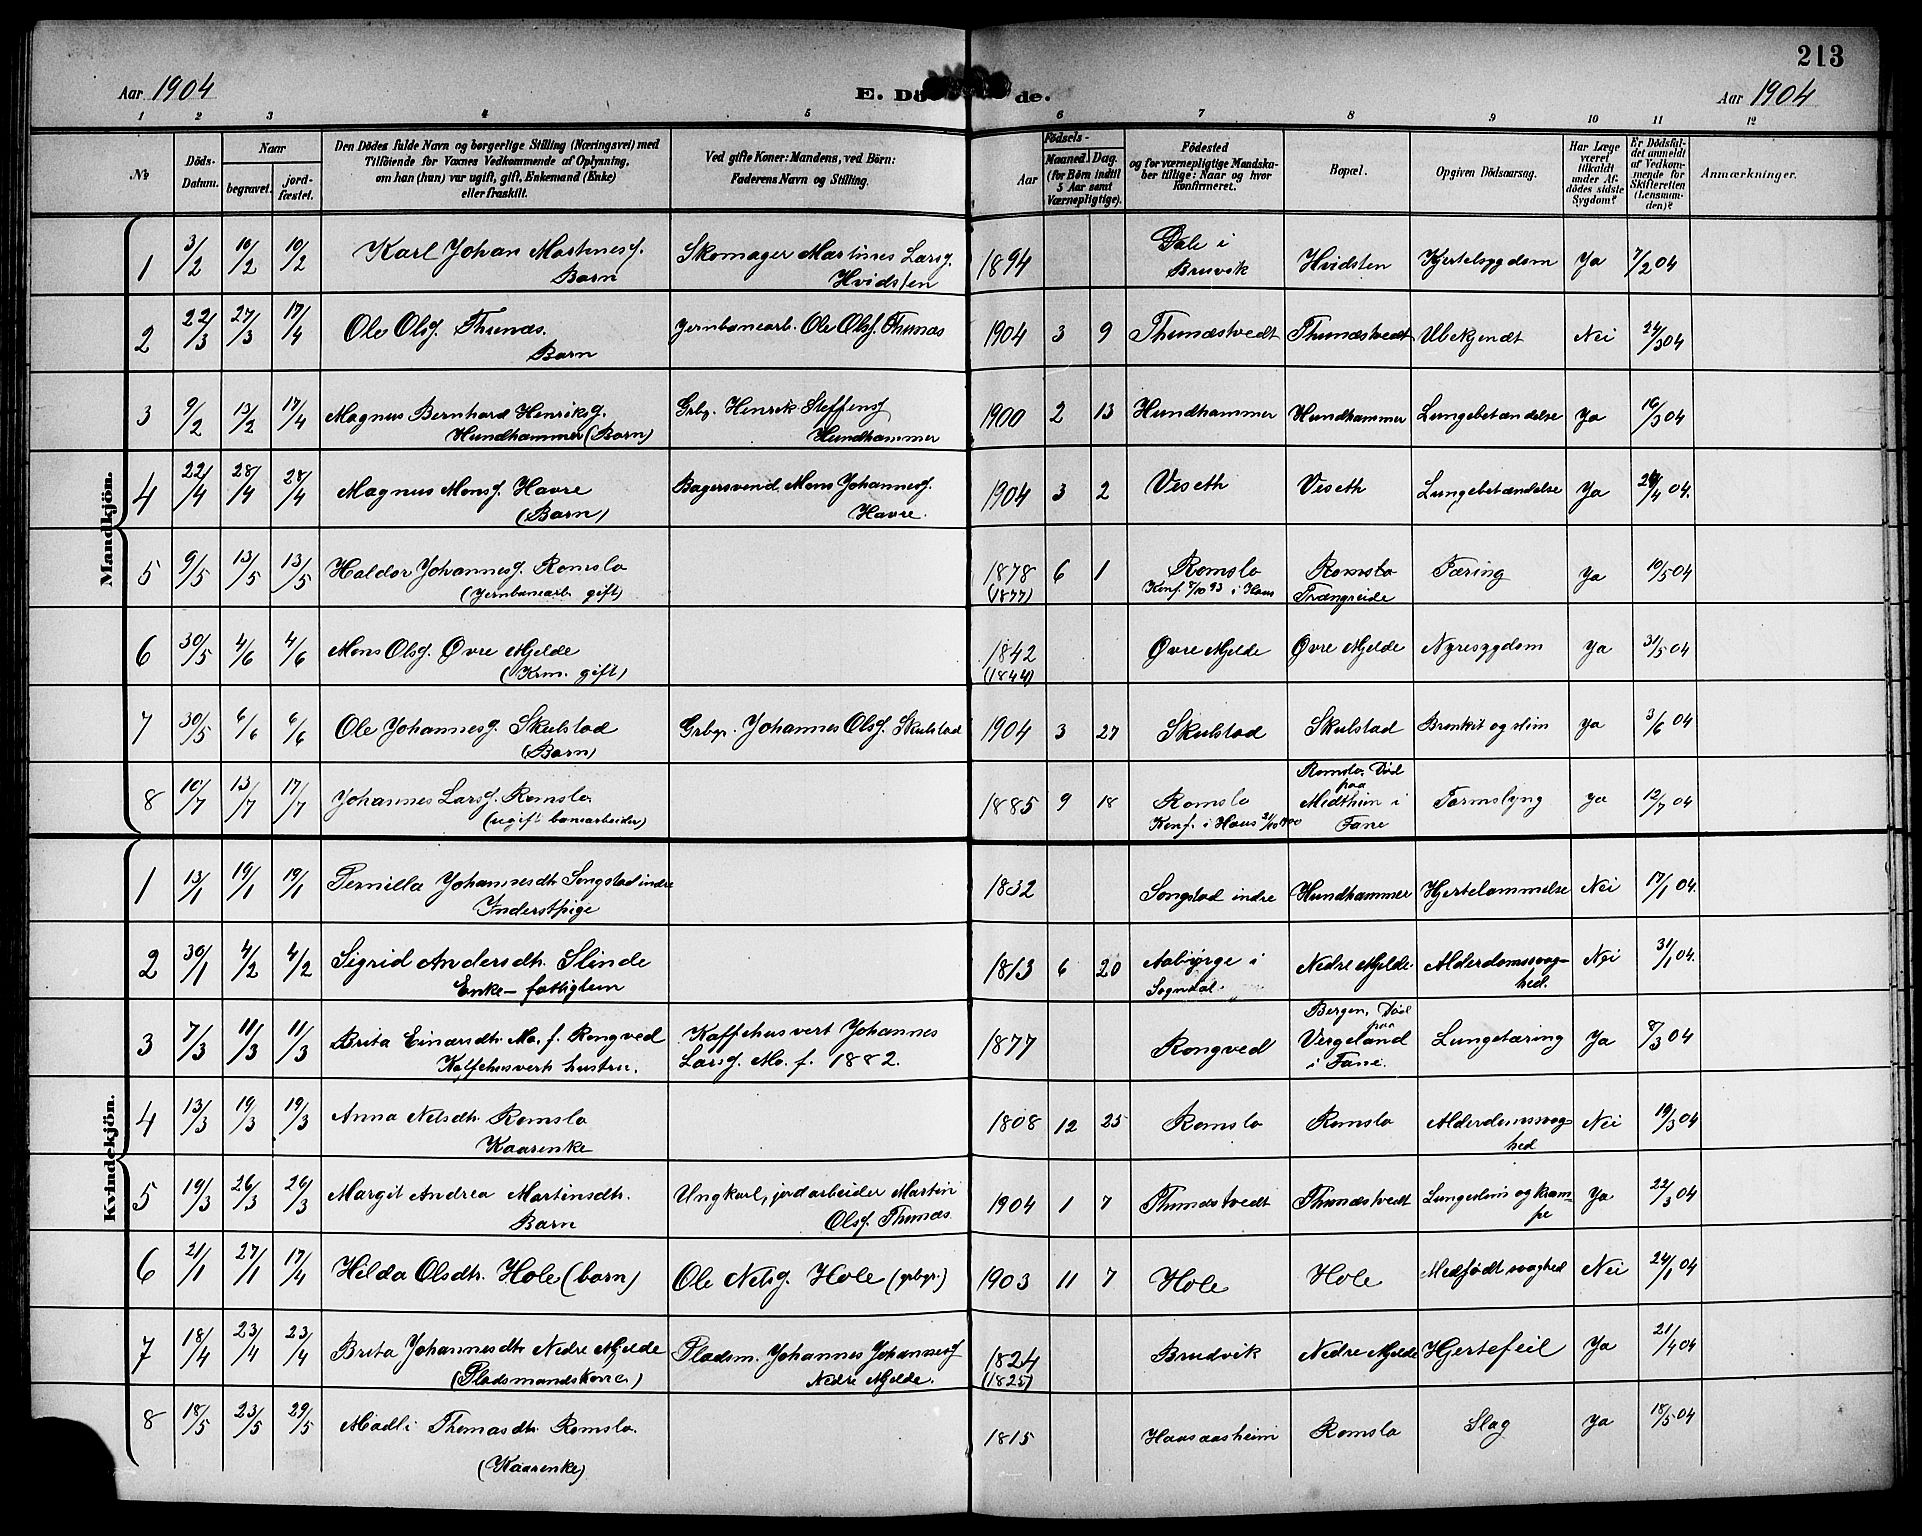 213
Aar 1904
E. Dö de.
Aar 1904
1 2 3 4 5 6 7 8 9 10 11 12
No
Döds-Datum.
Naar
begravet.
jordfæstet.
Den Dödes fulde Navn og borgerlige Stilling (Næringsvei) med
Tilföiende for Voxnes Vedkommende af Oplysning,
om han (hun) var ugift, gift, Enkemand (Enke)
eller fraskilt.
Ved gifte Koner: Mandens, ved Börn:
Faderens Navn og Stilling.
Födsels-
Aar
Maaned. Dag.
(for Börn indtil
5 Aar samt
Værnepligtige).
Födested
og for værnepligtige Mandskaber
tillige: Naar og hvor
konfirmeret.
Bopæl.
Opgiven Dödsaarsag.
Har Læge
været
tilkaldt
under Afdödes
sidste
Sygdom?
Er Dödsfaldet
anmeldt
af Vedkommende
for
Skifteretten
(Lensmanden)?
Anmærkninger.
Mandkjön.
1 3/2 10/2 10/2 Karl Johan Martinesg. Barn Skomager Martines Larsg. Hvidsten 1894 Dale i Bruvik Hvidsten Kjertelsygdom Ja 7/2 04
2 22/3 27/3 17/4 Ole Olsg. Thunæs. Barn Jernbanearb. Ole Olsg. Thunæs 1904 3 9 Thunæstvedt Thunæstvedt Ubekjendt Nei 24/3 04
3 9/2 13/2 17/4 Magnus Bernhard Henriksg. Hundhammer (Barn) Grbr. Henrik Steffensg Hundhammer 1900 2 13 Hundhammer Hundhammer Lungebetændelse Ja 16/3 04
4 22/4 28/4 28/4 Magnus Monsg. Havre (Barn) Bagersvend Mons Johannesg. Havre. 1904 3 2 Veseth Veseth Lungebetændelse Ja /4 04.
5 9/5 13/5 13/5 Haldor Johannesg. Romslo (Jernbanearb. gift) 1878 (1877) 6 1 Romslo Konf. 8/10 93 i Haus Romslo Trængreide Tæring Ja 10/5 04
6 30/5 4/6 4/6 Mons Olsg. Øvre Mjelde (Krm. gift) 1842 (1844) Øvre Mjelde Øvre Mjelde Nyresygdom Ja 31/5 04
7 30/5 6/6 6/6 Ole Johannesg. Skulstad (Barn) Grbgr. Johannes Olsg. Skulstad 1904 3 27 Skulstad Skulstad Bronkit og slim Ja 3/6 04
8 10/7 13/7 17/7 Johannes Larsg. Romslo. (ugift banearbeider) 1885 9 18 Romslo Konf. i Haus 21/10 1900 Romslo. Död paa Midthun i Fane Tarmslyng Ja 12/7 04
Kvindekjön.
1 13/1 19/1 19/1 Pernilla Johannesdtr. Songstad indre Inderstpige 1832 Songstad indre Hundhammer Hjertelammelse Nei 17/1 04.
2 30/1 4/2 4/2 Sigrid Andersdtr. Slinde Enke - fattiglem 1813 6 20 Aabjørge i Sogndal. Nedre Mjelde. Alderdomssvaghed. Nei 31/1 04.
3 7/3 11/3 11/3 Brita Einarsdtr. Mo. f. Rongved Kaffehusverts hustru. Kaffehusvert Johannes Larsg. Mo. f. 1882. 1877 Rongved Bergen, Död paa Vergeland i Fane. Lungetæring Ja 8/3 04
4 13/3 19/3 19/3 Anna Nelsdtr. Romslo Kaarenke 1808 12 25 Romslo Romslo Alderdomssvaghed Nei 19/3 04
5 19/3 26/3 26/3 Margit Andrea Martinsdtr. Barn Ungkarl, jordarbeider Martin Olsg. Thunæs. 1904 1 7 Thunæstvedt Thunæstvedt Lungeslim og krampe Ja 22/3 04
6 21/1 27/1 17/4 Hilda Olsdtr. Hole (barn) Ole Nelsg. Hole (grbgr.) 1903 11 7 Hole Hole Medfødt svaghed Nei 24/1 04
7 18/4 23/4 23/4 Brita Johannesdtr. Nedre Mjelde (Pladsmandskone) Pladsm. Johannes Johannesg Nedre Mjelde. 1824 (1825) Brudvik Nedre Mjelde Hjertefeil Ja 21/4 04
8 18/5 23/5 29/5 Madli Thomasdtr. Romslo. (Kaarenke) 1815 Haasaasheim Romslo Slag Ja 18/5 04